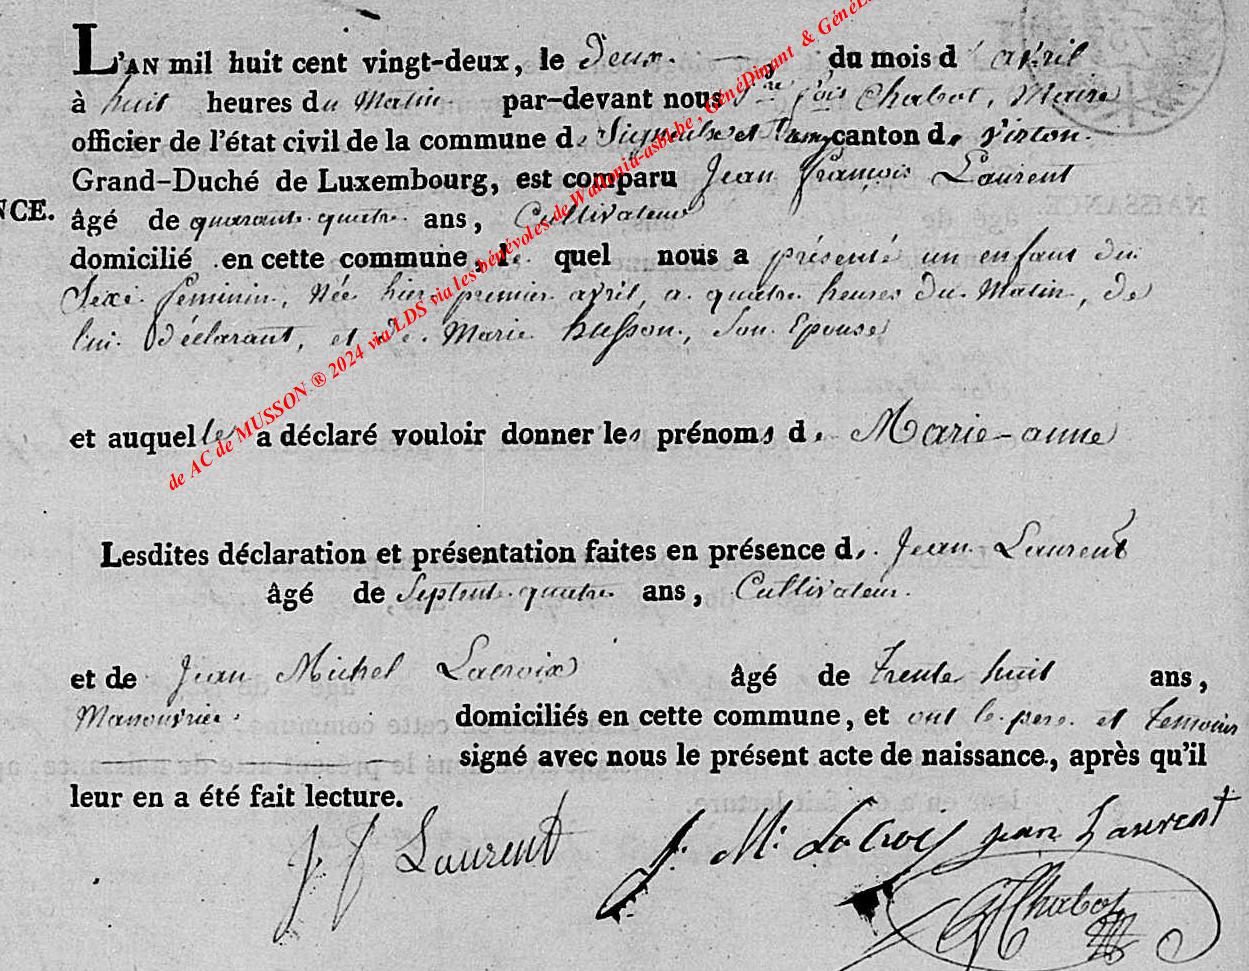 L'AN mil huit cent vingt-deux, le Deux du mois d'avril
à huit heures du Matin par-devant nous Chabot, Maire
officier de l'état civil de la commune de Signeulx et canton de Virton.
Grand-Duché de Luxembourg, est comparu Jean françois Laurent
NCE.
âgé de quarante quatre ans, Cultivateur
domicilié en cette commune, le quel nous a présenté un enfant du
Sexe féminin, Née hier premier avril, a quatre heures du Matin, de
lui Déclarant, et de Marie husson, Son Epouse
et auquelle a déclaré vouloir donner les prénoms de Marie-anne
Lesdites déclaration et présentation faites en présence de Jean Laurent
âgé de Septente quatre ans, Cultivateur.
et de Jean Michel Lacroix âgé de trente huit ans,
Manouvrier domiciliés en cette commune, et ont le pere et temoins
signé avec nous le présent acte de naissance, après qu'il
leur en a été fait lecture.
J. f Laurent J. M. LaCroix jean Laurent
Chabot
de AC de MUSSON ® 2024 via LDS via les bénévoles de Wallonia-asbl.be , GénéDinant & GénéL